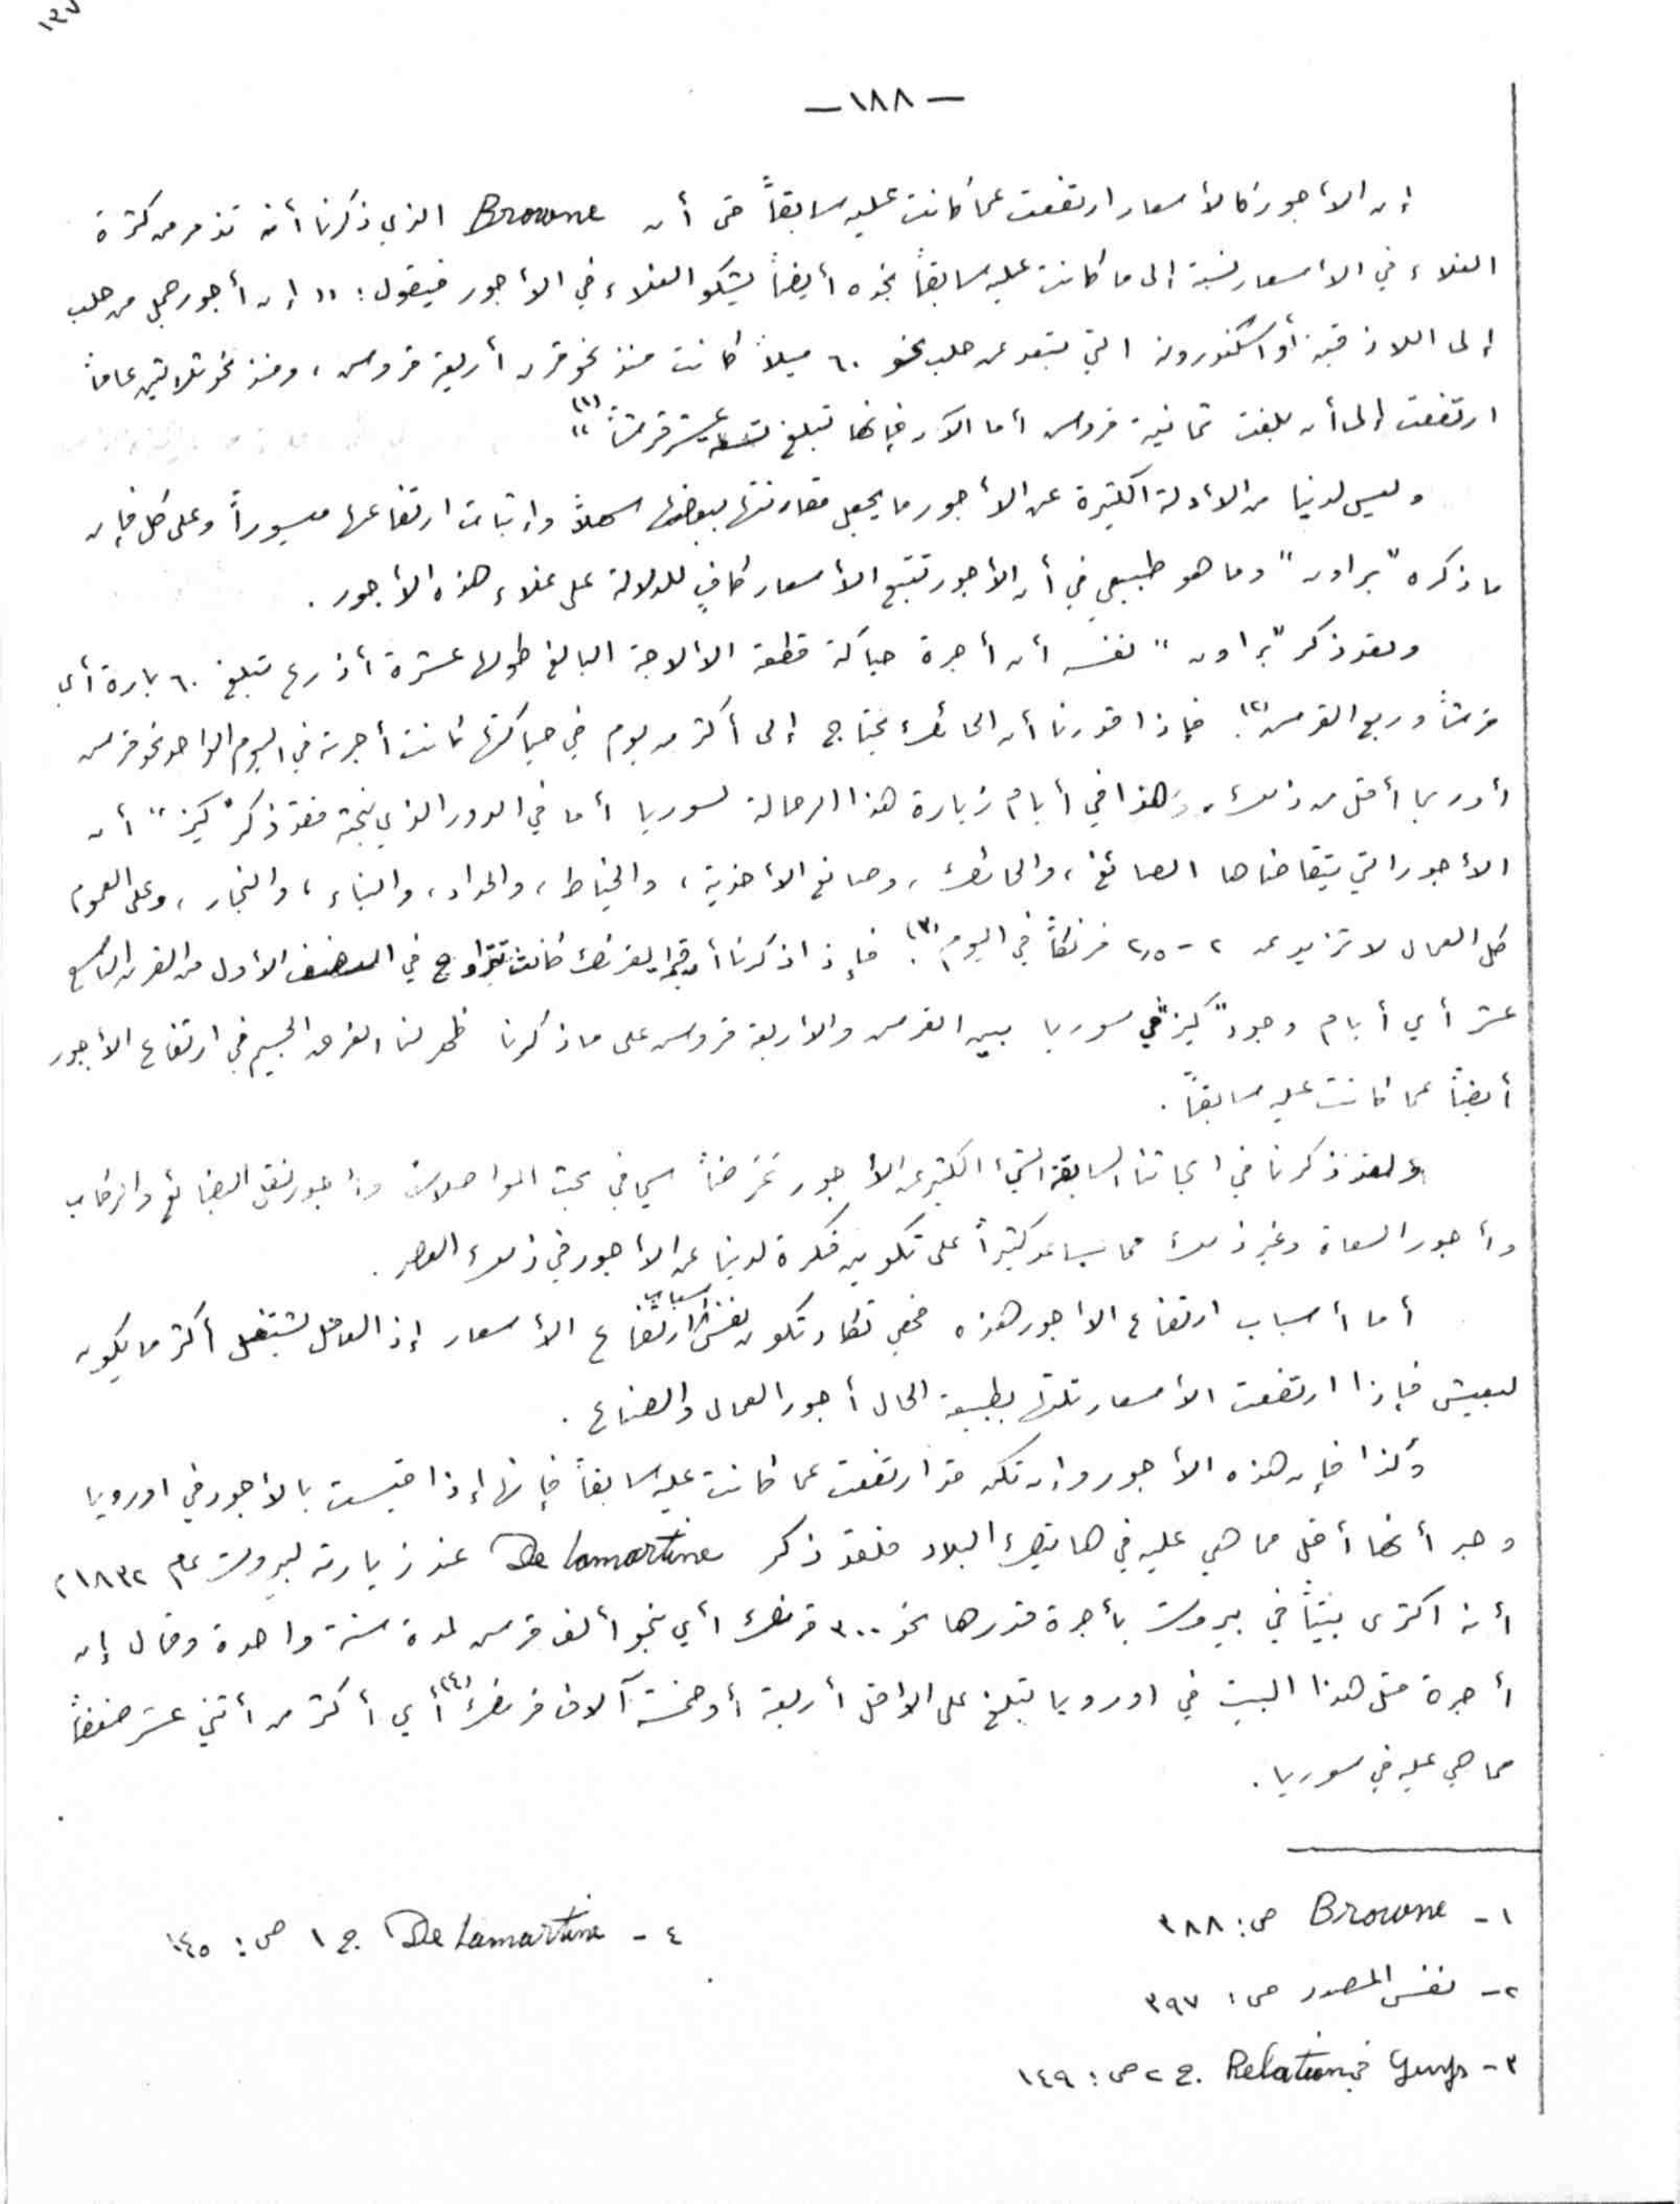 ١٣٧
— ١٨٨ —
إن الأجور كالأسعار ارتفعت عما كانت عليه سابقاً حتى أن Browne الذي ذكرنا أنه تذمر من كثرة
الغلاء في الأسعار نسبة إلى ما كانت عليه سابقاً نجده أيضاً يشكو الغلاء في الأجور فيقول: " إن أجور جمل من حلب
إلى اللاذقية أو اسكندرونة التي تبعد عن حلب نحو ٦٠ ميلاً كانت منذ نحو قرن أربعة قروش، ومنذ نحو ثلاثين عاماً
ارتفعت إلى أن بلغت ثمانية قروش أما الآن فإنها تبلغ تسعة عشر قرشاً "(١)
وليس لدينا من الأدلة الكثيرة عن الأجور ما يجعل مقارنتها ببعضها سهلاً وإثبات ارتفاعها ميسوراً وعلى كل فإن
ما ذكره "براون" وما هو طبيعي في أن الأجور تتبع الأسعار كافٍ للدلالة على غلاء هذه الأجور .
ولقد ذكر "براون" نفسه أن أجرة حياكة قطعة الألاجة البالغ طولها عشرة أذرع تبلغ ٦٠ بارة أي
قرشاً وربع القرش(٢). فإذا قدرنا أن الحائك يحتاج إلى أكثر من يوم في حياكتها كانت أجرته في اليوم الواحد نحو قرش
أو ربما أقل من ذلك، وهذا في أيام زيارة هذا الرحالة لسوريا أما في الدور الذي نبحثه فقد ذكر "كيز" أن
الأجور التي يتقاضاها الصائغ، والحائك، وصانع الأحذية، والخياط، والحداد، والبناء، والنجار، وعلى العموم
كل العمال لا تزيد عن ٢ - ٢٫٥ فرنكاً في اليوم(٣). فإذا ذكرنا أن قيمة الفرنك كانت تتراوح في النصف الأول من القرن التاسع
عشر أي أيام وجود "كيز" في سوريا بين القرش والأربعة قروش على ما ذكرنا ظهر لنا الفرق الجسيم في ارتفاع الأجور
أيضاً عما كانت عليه سابقاً .
ولقد ذكرنا في ابحاثنا السابقة الشيء الكثير عن الأجور عرضاً سيما في بحث المواصلات وأجور نقل البضائع والركاب
وأجور السعاة وغير ذلك مما يساعد كثيراً على تكوين فكرة لدينا عن الأجور في ذلك العصر .
أما أسباب ارتفاع الأجور هذه فهي تكاد تكون نفس أسباب ارتفاع الأسعار إذ العامل يشتغل أكثر ما يكون
ليعيش فإذا ارتفعت الأسعار تلتها بطبيعة الحال أجور العمال والصناع .
وكذا فإن هذه الأجور وإن تكن قد ارتفعت عما كانت عليه سابقاً فإنها إذا قيست بالأجور في اوروبا
وجد أنها أقل مما هي عليه في هاتيك البلاد فلقد ذكر De Lamartine عند زيارته لبيروت عام ١٨٣٢ م
أنه اكترى بيتاً في بيروت بأجرة قدرها نحو ٣٠٠ فرنك أي نحو ألف قرش لمدة سنة واحدة وقال إن
أجرة مثل هذا البيت في اوروبا تبلغ على الأقل أربعة أو خمسة آلاف فرنك(٤) أي أكثر من أثني عشر ضعفاً
مما هي عليه في سوريا .
١- Browne ص: ٣٨٨
٢- نفس المصدر ص: ٣٩٧
٣- Guys في Relation ج. ٢ ص: ١٤٩
٤ - De Lamartine ج. ١ ص: ١٤٥